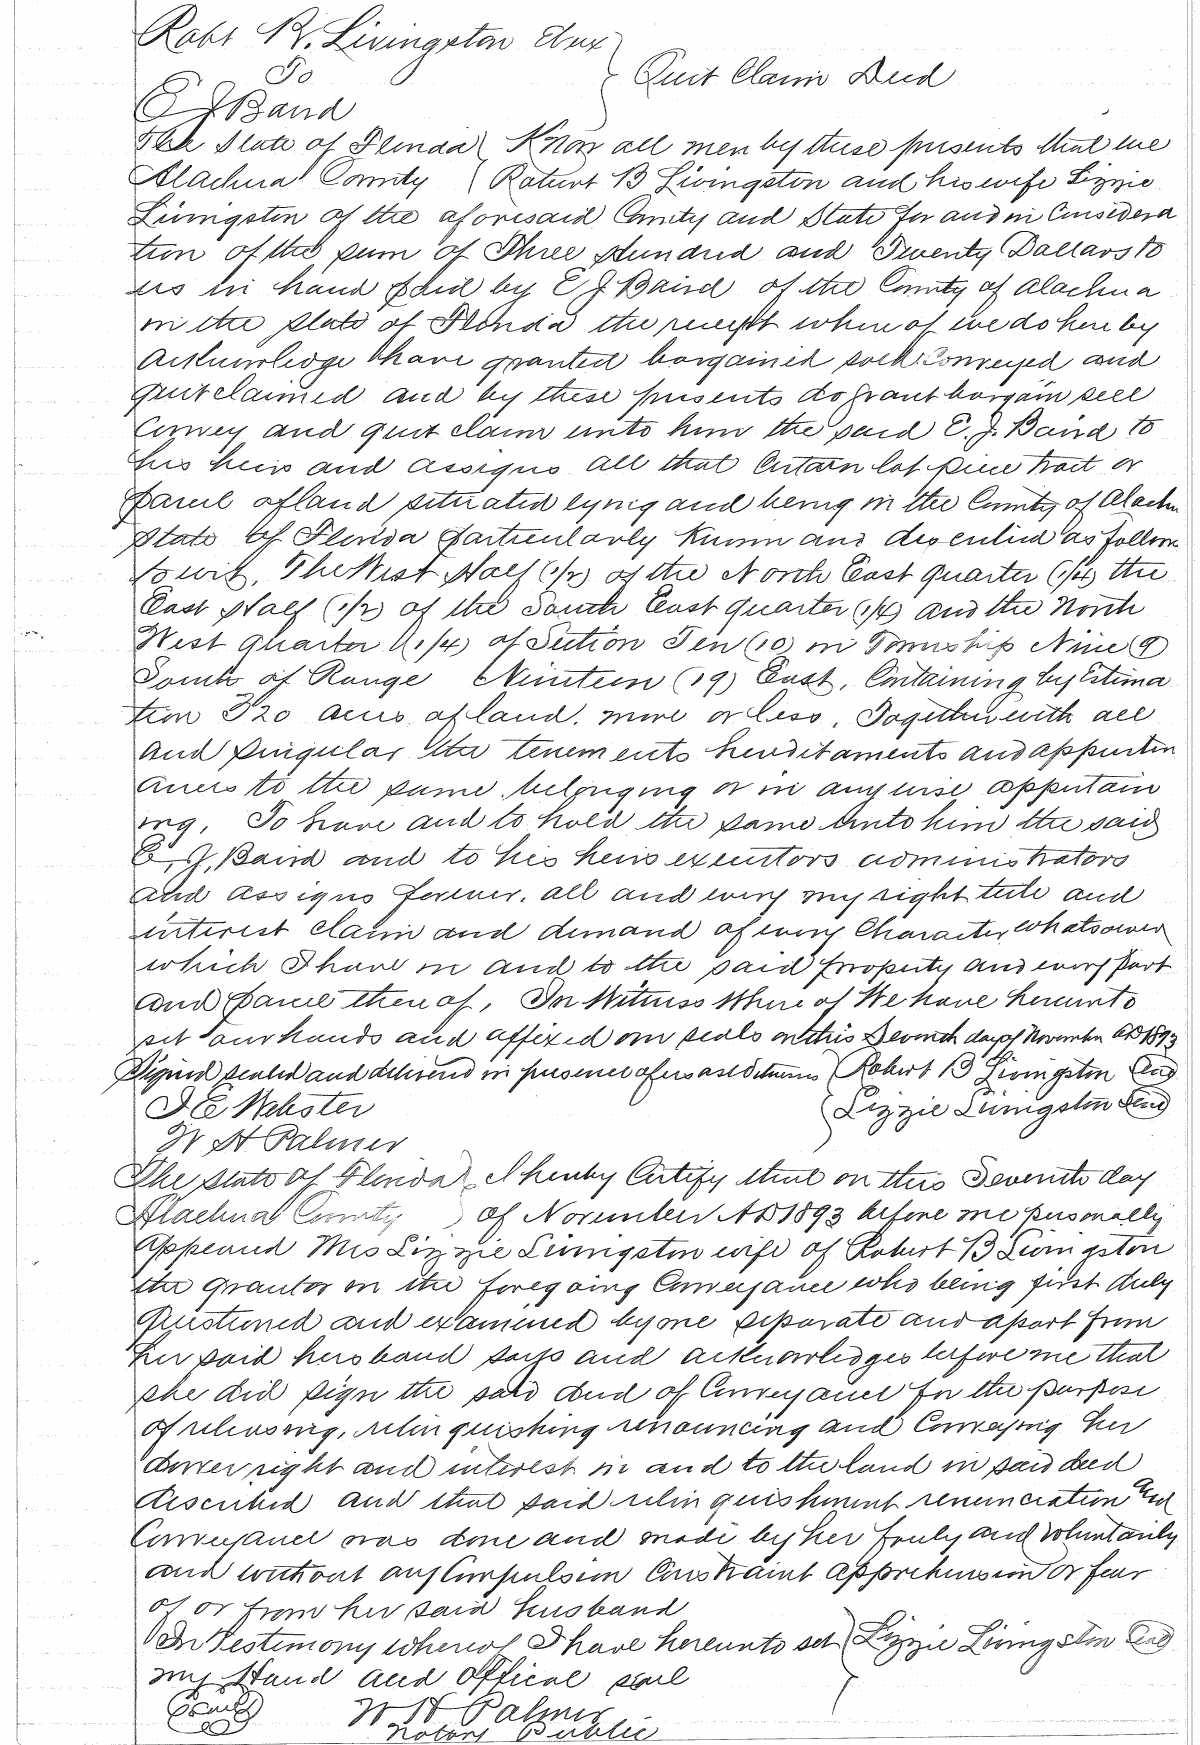 Robt R. Livingston Etux
To
Quit Claim Deed
E J Baird
The State of Florida Know all men by these presents that we
Alachua County Robert B Livingston and his wife Lizzie
Livingston of the aforesaid County and State for and in Considera
tion of the sum of Three Hundred and Twenty Dollars to
us in hand paid by E J Baird of the County of Alachua
in the State of Florida the receipt where of we do here by
acknowledge have granted bargained sold Conveyed and
quitclaimed and by these presents do grant bargain sell
Convey and quit claim unto him the said E. J. Baird to
his heirs and assigns all that Certain lot piece tract or
parcel of land situated lying and being in the County of Alachu
State of Florida particularly known and described as follows
to wit. The West Half (1/2) of the North East quarter (1/4) the
East Half (1/2) of the South East quarter (1/4) and the North
West quarter (1/4) of Section Ten (10) in Township Nine (9)
South of Range Nineteen (19) East, Containing by Estima
tion 320 acres of land. more or less, Together with all
and singular the tenements hereditaments and appurten
ances to the same belonging or in anywise appertain
ing, To have and to hold the same unto him the said
E. J. Baird and to his heirs executors administrators
and assigns forever. all and every my right title and
interest claim and demand of every Character whatsoever
which I have in and to the said property and every Part
and parcel there of, In Witness Where of We have hereunto
set our hands and affixed our seals on this Seventh day of November AD 1893
Signed sealed and delivered in presence of us as Witnesses Robert B Livingston Seal
J. E Webster Lizzie Livingston Seal
W H Palmer
The State of Florida I hereby Certify that on this Seventh day
Alachua County of November AD 1893 before me personally
Appeared Mrs Lizzie Livingston wife of Robert B Livingston
the grantor in the foregoing Conveyance who being first duly
Questioned and examined by me separate and apart from
her said husband says and acknowledges before me that
she did sign the said deed of Conveyance for the purpose
of releasing, relinquishing renouncing and Conveying her
dower right and interest in and to the land in said deed
described and that said relinquishment renunciation and
Conveyance was done and made by her freely and voluntarily
and without any Compulsion Constraint apprehension or fear
of or from her said husband
In Testimony whereof I have hereunto set Lizzie Livingston Seal
my Hand and Offical seal
Seal W H Palmer
Notary Public